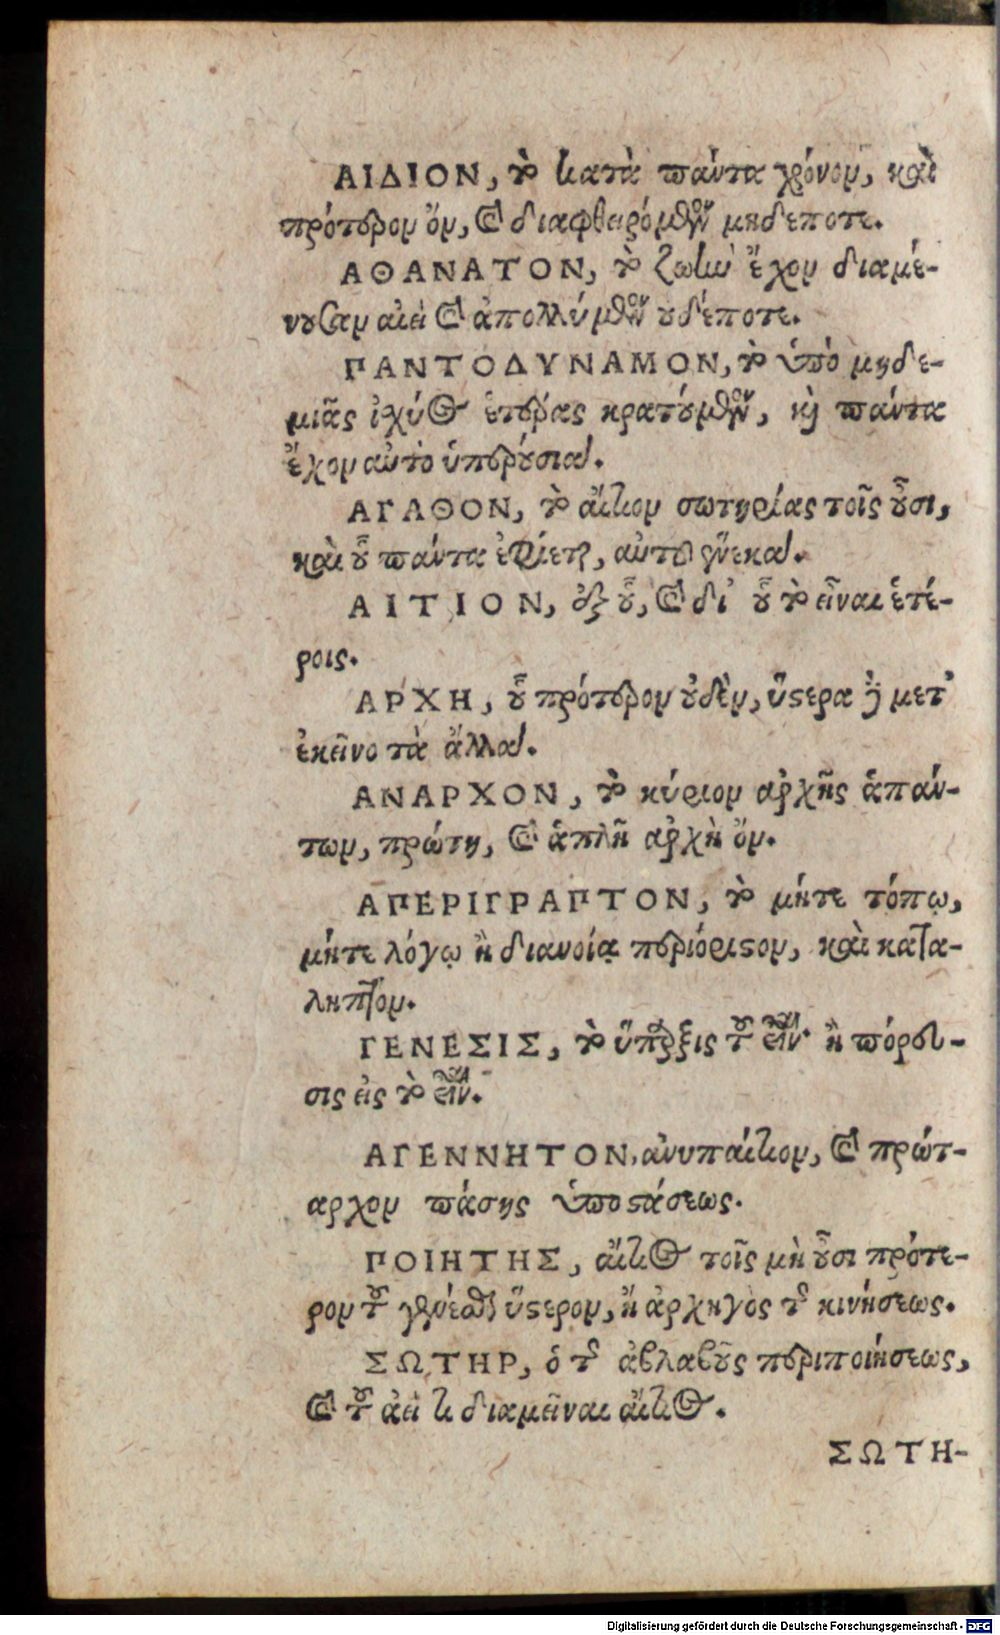 ΑΙΔΙΟΝ, τὸ κατὰ πάντα χρόνον, καὶ
πρότερον ὂν, καὶ διαφθειρόμενον μηδέποτε.
ΑΘΑΝΑΤΟΝ, τὸ ζωὴν ἔχον διαμέ-
νουσαν αἰεὶ καὶ ἀπολλύμενον οὐδέποτε.
ΠΑΝΤΟΔΥΝΑΜΟΝ, τὸ ὑπὸ μηδε-
μιᾶς ἰχύος ἑτέρας κρατούμενον, καὶ πάντα
ἔχον αὐτὸ ὑπερούσια.
ΑΓΑΘΟΝ, τὸ αἴτιον σωτηρίας τοῖς οὖσι,
καὶ οὗ πάντα ἐφίεται, αὐτοῦ ἕνεκα.
ΑΙΤΙΟΝ, ἐξ οὗ, καὶ δι' οὗ τὸ εἶναι ἑτέ-
ροις.
ΑΡΧΗ, οὗ πρότερον οὐδὲν, ὕστερα δὲ μετ'
ἐκεῖνο τὰ ἄλλα.
ΑΝΑΡΧΟΝ, τὸ κύριον ἀρχῆς ἁπάν-
των, πρώτη, καὶ ἁπλῆ ἀρχὴ ὄν.
ΑΠΕΡΙΓΡΑΠΤΟΝ, τὸ μήτε τόπῳ,
μήτε λόγῳ ἢ διανοίᾳ περιόριστον, καὶ κατα-
ληπτον.
ΓΕΝΕΣΙΣ, τὸ ὕπαρξις τοῦ εἶναι ἢ πόρευ-
σις εἰς τὸ εἶναι.
ΑΓΕΝΝΗΤΟΝ, ἀνυπαίτιον, καὶ πρώτ-
αρχον πάσης ὑποστάσεως.
ΠΟΙΗΤΗΣ, αἴτιος τοῖς μὴ οὖσι πρότε-
ρον τοῦ γενέσθαι ὕστερον, ἢ ἀρχηγὸς τῆς κινήσεως.
ΣΩΤΗΡ, ὁ τῆς ἀβλαβοῦς περιποιήσεως,
καὶ τοῦ ἀεὶ τι διαμεῖναι αἴτιος.
ΣΩΤΗ-
Digitalisierung gefördert durch die Deutsche Forschungsgemeinschaft - DFG